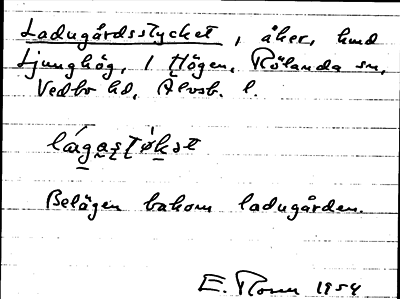 Ladugårdsstycket, åker, hmd
Ljunghög, 1 Högen, Rölanda sn,
Vedbo hd, Älvsb. l.
Belägen bakom ladugården.
E. 1954